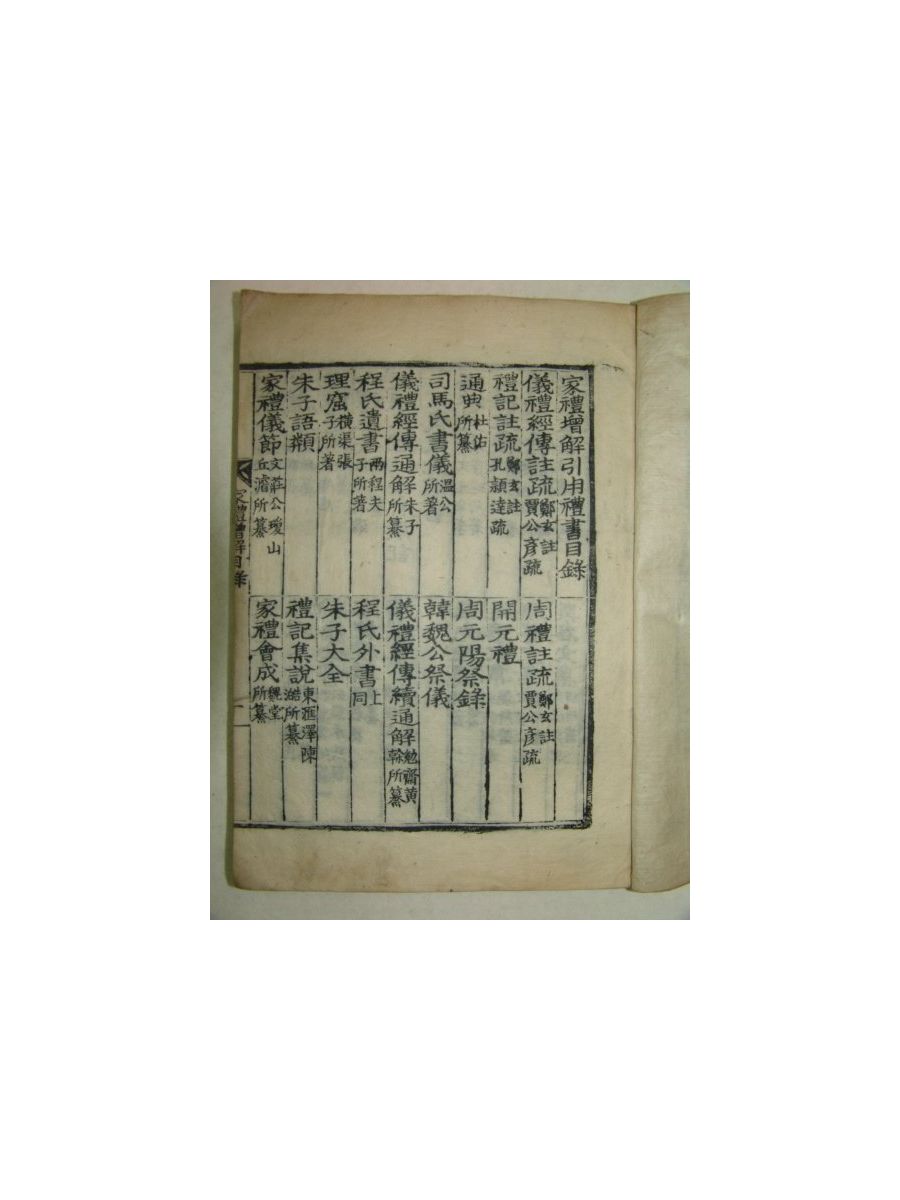 家禮增解引用禮書目錄
儀禮經傳註疏 鄭玄註 賈公彥疏 周禮註疏 鄭玄註 賈公彥疏
禮記註疏 鄭玄註 孔穎達疏 開元禮
通典 杜佑所纂 周元陽祭錄
司馬氏書儀 温公所著 韓魏公祭儀
儀禮經傳通解 朱子所纂 儀禮經傳續通解 勉齋黃榦所纂
程氏遺書 兩程夫子所著 程氏外書 上同
理窟 橫渠張子所著 朱子大全
朱子語類 禮記集說 東滙澤陳澔所纂
家禮儀節 文莊公瓊山丘濬所纂 家禮會成 魏堂所纂
家禮增解目錄 一